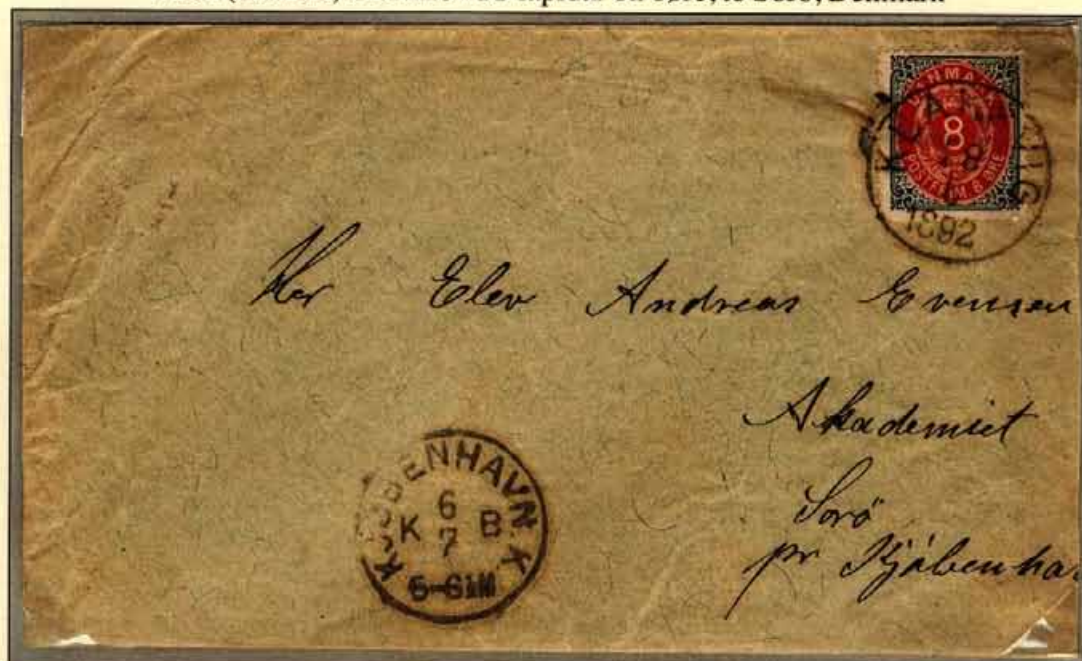 to Sorø, Denmark
DANMARK
8
POSTFRIM. 8 ØRE
1892
Her Elev Andreas Evensen
Akademiet
Sorö
pr Kjöbenha
KJØBENHAVN.K.
6
K B
7